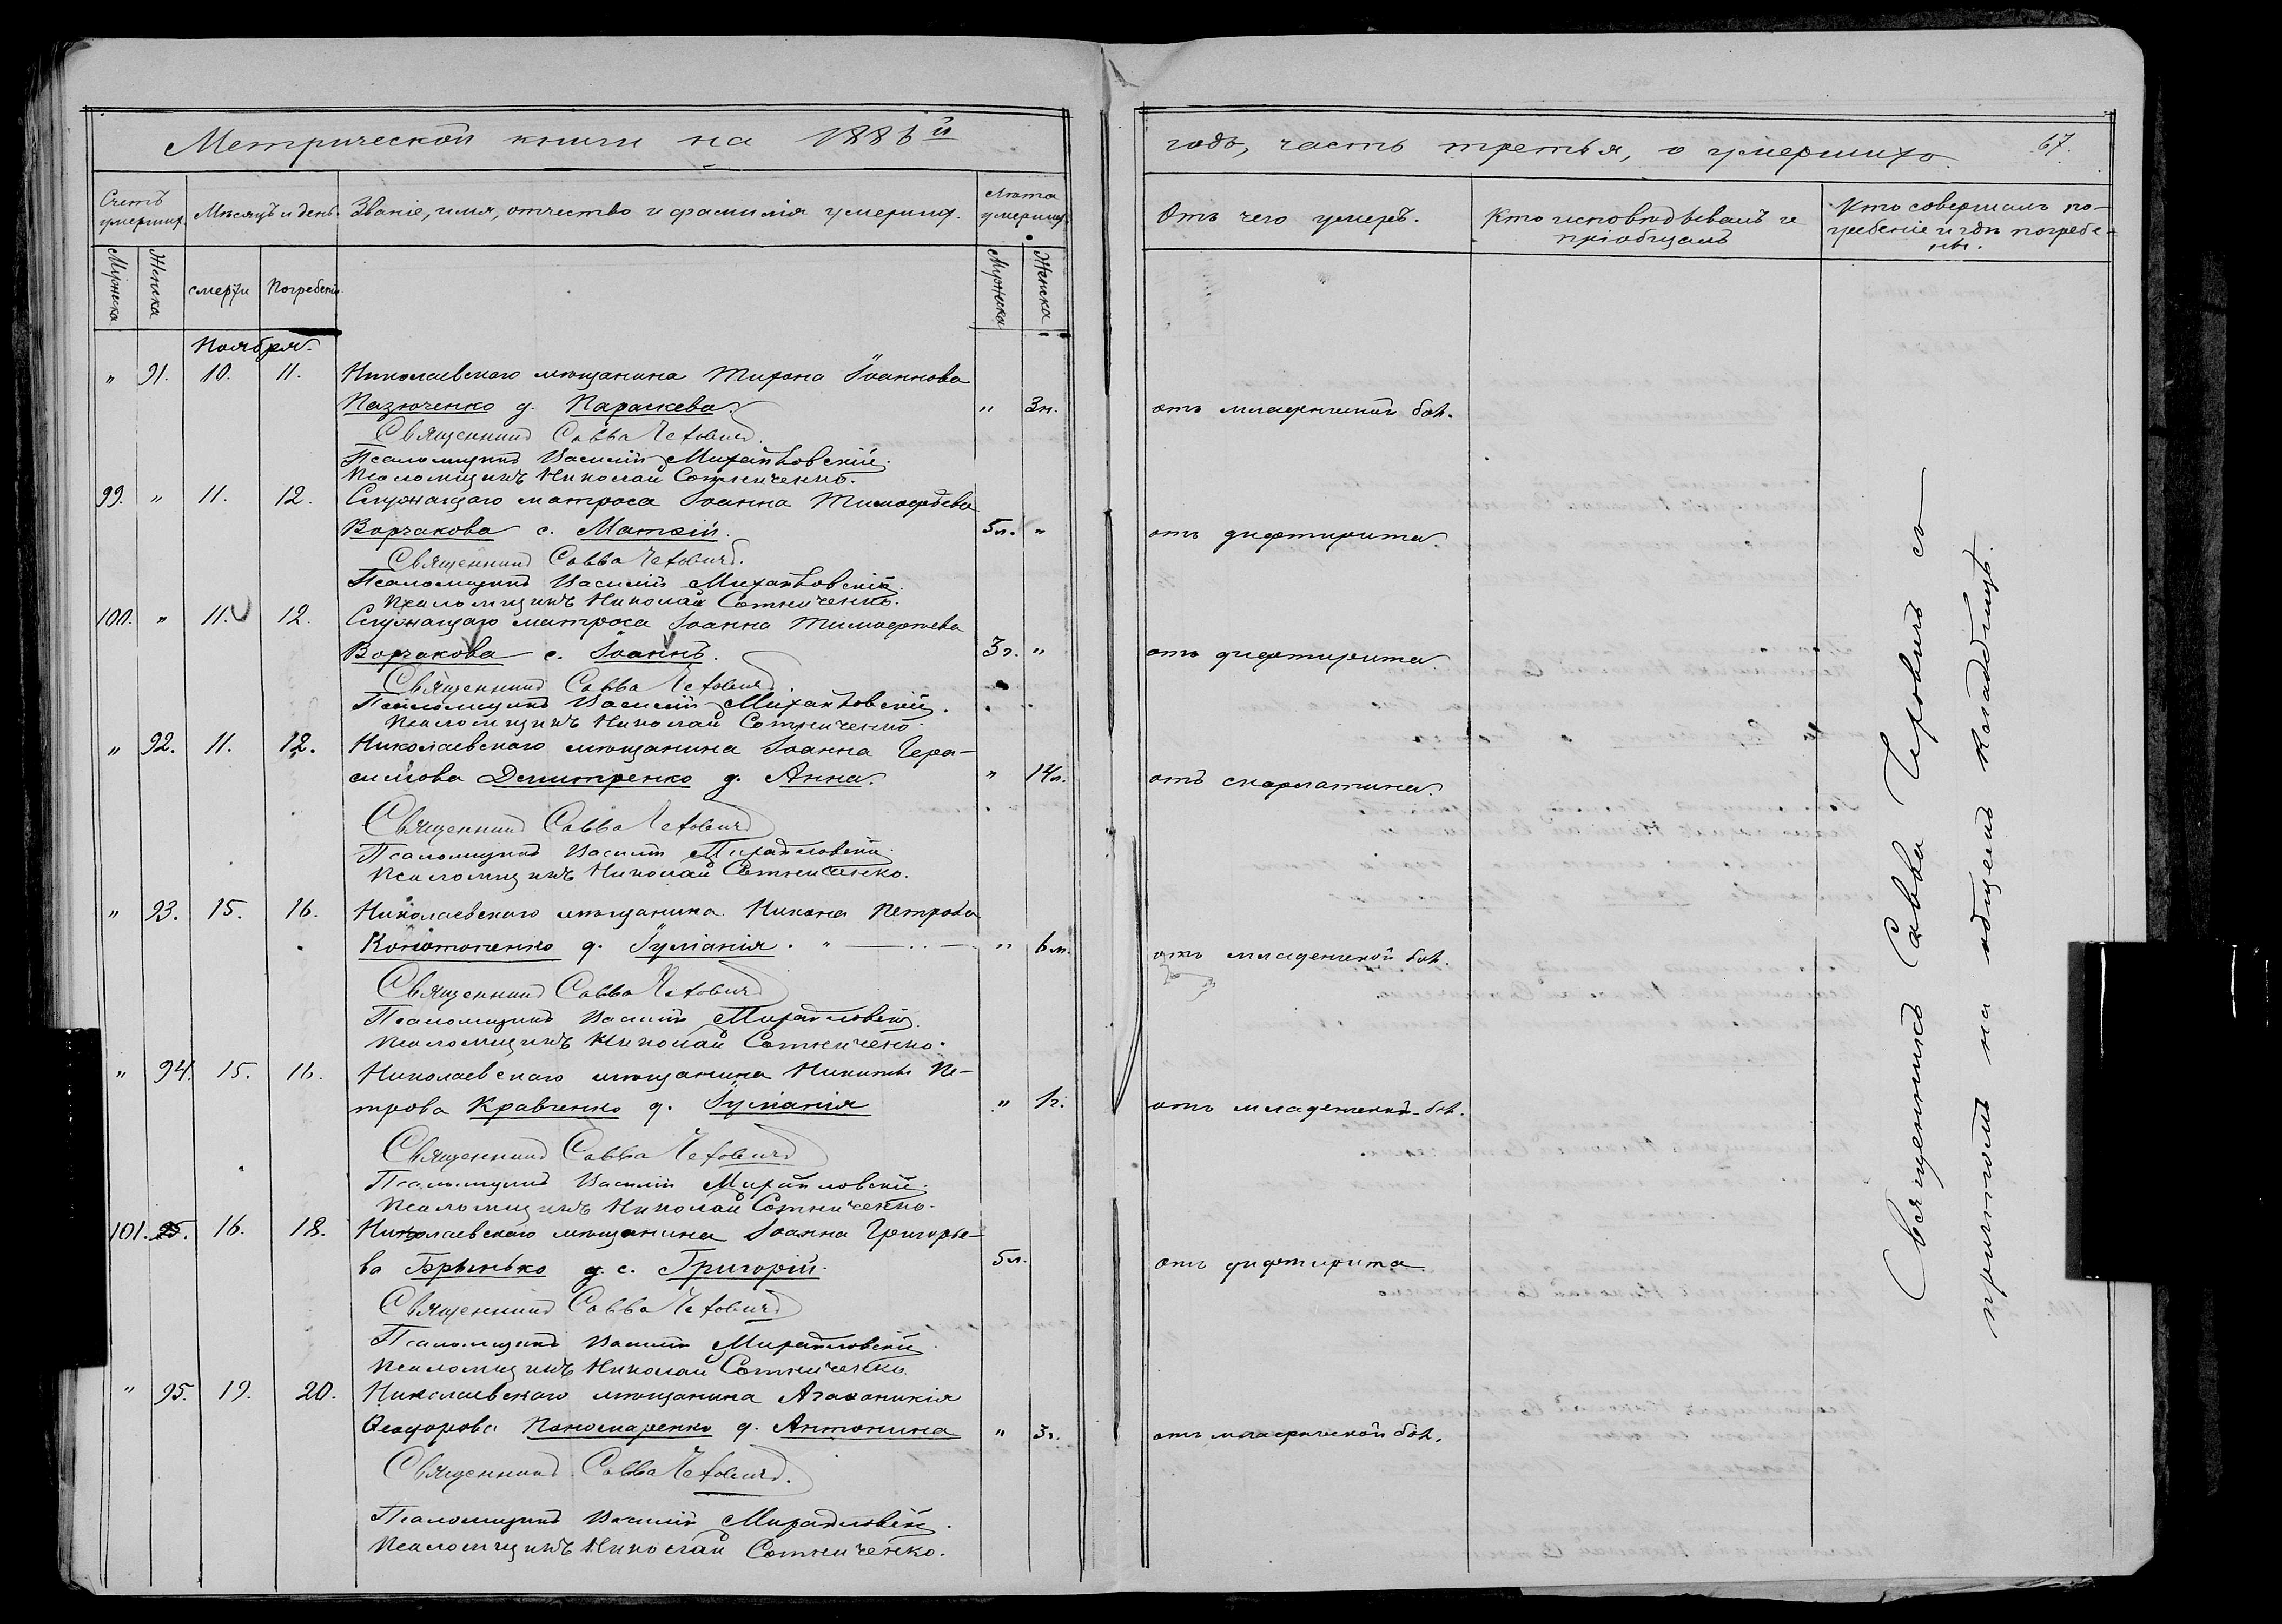 Метрической книги на 1886й
Счетъ умершихъ.
Мѣсяцъ и день.
Званіе, имя, отчество и фамилія умершихъ.
Лѣта умершихъ
Мужеска
Женска
смерти
Погребенія
Мужеска
Женска
Ноября.
" 91. 10. 11. Николаевскаго мѣщанина Тихона Іоаннова
Пазюченко д. Параскева. " 3н.
Священникъ Савва Чехович
Псаломщикъ Василій Михайловскій.
Псаломщикъ Николай Сотниченко.
99. " 11. 12. Служащаго матроса Іоанна Тимоѳеева
Ворчакова с. Матѳій. 5л. "
Священникъ Савва Чехович
Псаломщикъ Василій Михайловскій.
Псаломщикъ Николай Сотниченко.
100. " 11. 12. Служащаго матроса Іоанна Тимоѳеева
Ворчакова с. Іоаннъ. 3г. "
Священникъ Савва Чехович
Псаломщикъ Василій Михайловскій.
Псаломщикъ Николай Сотниченко.
" 92. 11. 12. Николаевскаго мѣщанина Іоанна Гера-
симова Дмитренко д. Анна. " 14л.
Священникъ Савва Чехович
Псаломщикъ Василій Михайловскій.
Псаломщикъ Николай Сотниченко.
" 93. 15. 16. Николаевскаго мѣщанина Никона Петрова
Конотопенко д. Іуліанія. " 6м.
Священникъ Савва Чехович
Псаломщикъ Василій Михайловскій.
Псаломщикъ Николай Сотниченко.
" 94. 15. 16. Николаевскаго мѣщанина Никиты Пе-
трова Кравченко д. Іуліанія " 1г.
Священникъ Савва Чехович
Псаломщикъ Василій Михайловскій.
Псаломщикъ Николай Сотниченко.
101. 16. 18. Николаевскаго мѣщанина Іоанна Григорье-
ва Брынько с. Григорій. 5л.
Священникъ Савва Чехович
Псаломщикъ Василій Михайловскій.
Псаломщикъ Николай Сотниченко.
" 95. 19. 20. Николаевскаго мѣщанина Агаѳоникія
Ѳеодорова Пономаренко д. Антонина " 3г.
Священникъ Савва Чехович
Псаломщикъ Василій Михайловскій.
Псаломщикъ Николай Сотниченко.
годъ, часть третья, о умершихъ. 67.
Отъ чего умеръ.
Кто исповѣдывалъ и пріобщалъ
Кто совершалъ по-
гребеніе и гдѣ погребе-
ны.
отъ младенческой бол.
отъ дифтирита.
отъ дифтирита.
отъ скарлатина.
отъ младенческой бол.
отъ младенческой бол.
отъ дифтирита.
отъ младенческой бол.
Священникъ Савва Чеховичъ съ
причтомъ на общемъ кладбищѣ.